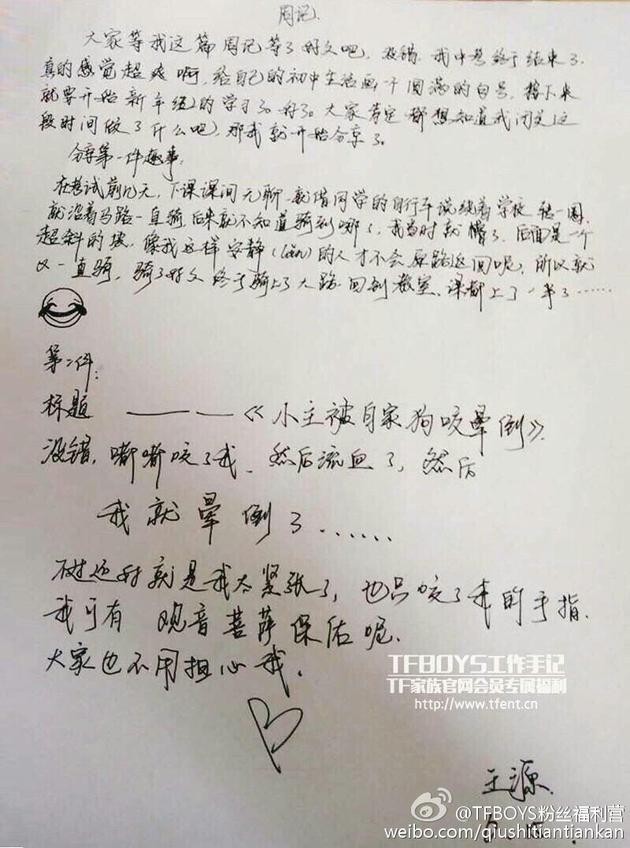 周记.
大家等我这篇周记等了好久吧,没错,我中考终于结束了.
真的感觉超爽啊,给自己的初中生活画一个圆满的句号,接下来
就要开始新年级的学习了.好了.大家肯定都想知道我闭关这
段时间做了什么吧,那我就开始分享了.
分享第一件趣事:
在考试前几天,下课课间无聊,就借同学的自行车说绕着学校骑一圈,
就沿着马路一直骑,后来就不知道骑到哪了,我当时就懵了,后面是一个
超斜的坡,像我这样安静(lǎn)的人才不会原路返回呢,所以就
又一直骑,骑了好久终于骑上了大路.回到教室,课都上了一半了……
第二件:
标题 ————《小主被自家狗咬晕倒》
没错,嘶嘶咬了我,然后流血了,然后
我就晕倒了……
不过还好就是我太紧张了,也只咬了我的手指.
我可有观音菩萨保佑呢.
大家也不用担心我.
TFBOYS工作手记
TF家族官网会员专属福利
http://www.tfent.cn
王源
@TFBOYS粉丝福利营
weibo.com/qiushitiantiankan